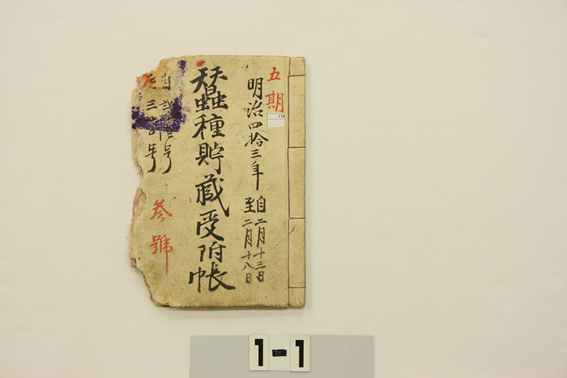 五期
明治四拾三年
自二月十三日
至二月十八日
蚕種貯蔵受附帳
自
号
至三
号
参號
1-1